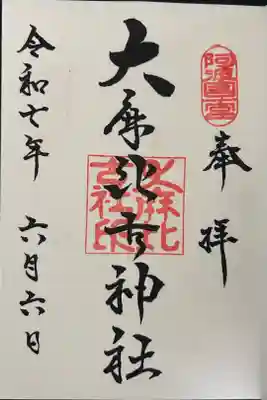 阿波國一宮
奉拝
大麻比古神社
大麻比
古社印
令和七年 六月六日